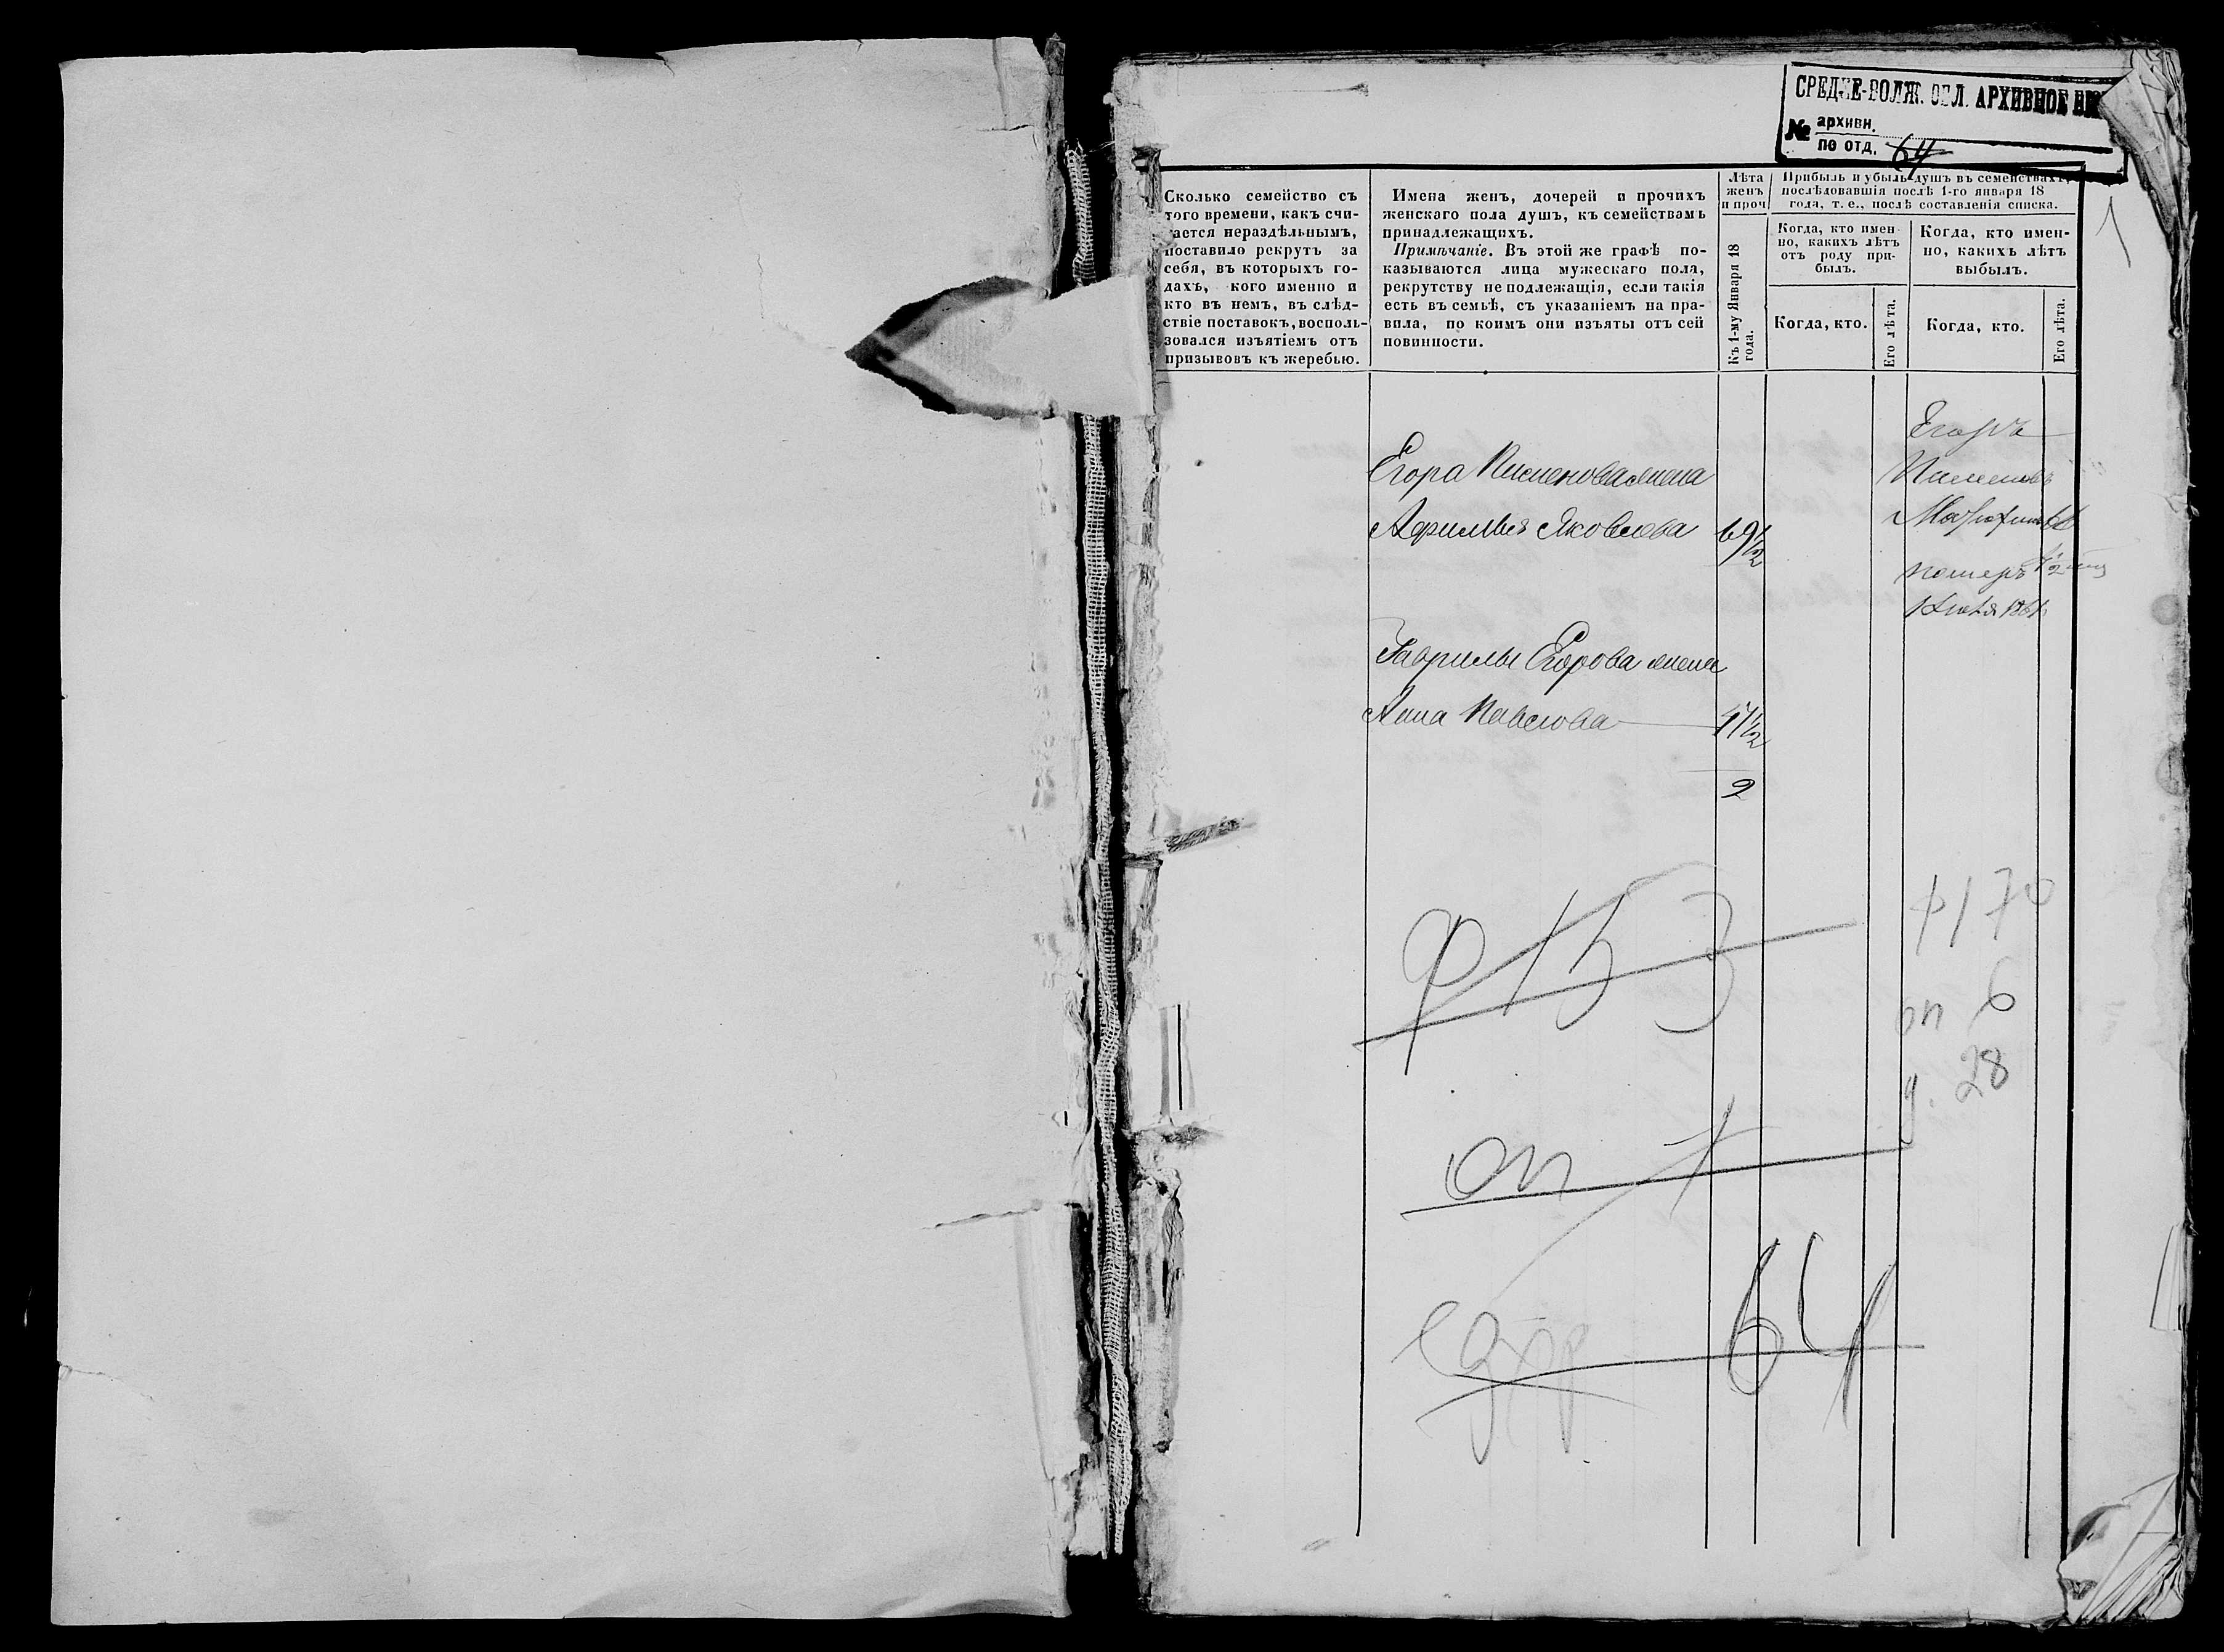 СРЕДНЕ-ВОЛЖ. ОБЛ. АРХИВНОЕ
№ архивн.
по отд. 64
1
Сколько семейство съ
того времени, какъ счи-
тается нераздѣльнымъ,
поставило рекрутъ за
себя, въ которыхъ го-
дахъ, кого именно и
кто въ немъ, въ слѣд-
ствіе поставокъ, восполь-
зовался изъятіемъ отъ
призывовъ къ жеребью.
Имена женъ, дочерей и прочихъ
женскаго пола душъ, къ семействамъ
принадлежащихъ.
Примѣчаніе. Въ этой же графѣ по-
казываются лица мужескаго пола,
рекрутству не подлежащія, если такія
есть въ семьѣ, съ указаніемъ на пра-
вила, по коимъ они изъяты отъ сей
повинности.
Лѣта
женъ
и проч
Къ 1-му Января 18
года.
Прибыль и убыль душъ въ семействахъ,
послѣдовавшія послѣ 1-го января 18
года, т. е., послѣ составленія списка.
Когда, кто имен-
но, какихъ лѣтъ
отъ роду при-
былъ.
Когда, кто.
Его лѣта.
Когда, кто имен-
но, какихъ лѣтъ
выбылъ.
Когда, кто.
Его лѣта.
Егора Пименова жена
Яковлева 69 1/2
Гаврилы Егорова жена
Анна Павлова 47 1/2
2
Егоръ
Пименовъ
померъ
ф 153
оп 1
64
ф 170
оп 6
д. 28